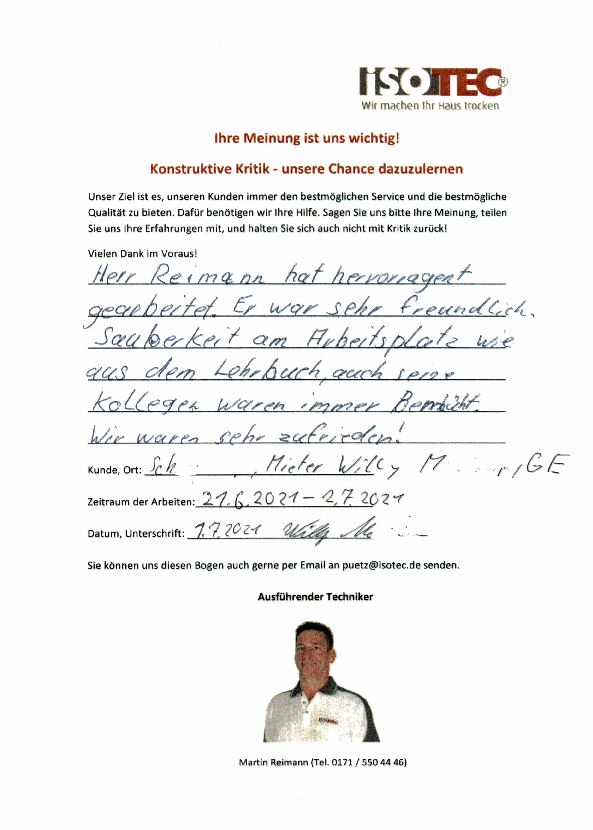 ISOTEC®
Wir machen Ihr Haus trocken
Ihre Meinung ist uns wichtig!
Konstruktive Kritik - unsere Chance dazuzulernen
Unser Ziel ist es, unseren Kunden immer den bestmöglichen Service und die bestmögliche
Qualität zu bieten. Dafür benötigen wir Ihre Hilfe. Sagen Sie uns bitte Ihre Meinung, teilen
Sie uns Ihre Erfahrungen mit, und halten Sie sich auch nicht mit Kritik zurück!
Vielen Dank im Voraus!
Herr Reimann hat hervorragent
gearbeitet. Er war sehr freundlich.
Sauberkeit am Arbeitsplatz wie
aus dem Lehrbuch, auch seine
Kollegen waren immer Bemüht.
Wir waren sehr zufrieden!
Kunde, Ort: Sch , Mieter Willy M r, GE
Zeitraum der Arbeiten: 21.6.2021 – 2.7.2021
Datum, Unterschrift: 1.7.2021 Willy
Sie können uns diesen Bogen auch gerne per Email an puetz@isotec.de senden.
Ausführender Techniker
ISOTEC
Martin Reimann (Tel. 0171 / 550 44 46)